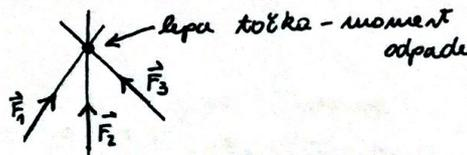 lepa točka - moment
odpade
F⃗₁
F⃗₂
F⃗₃